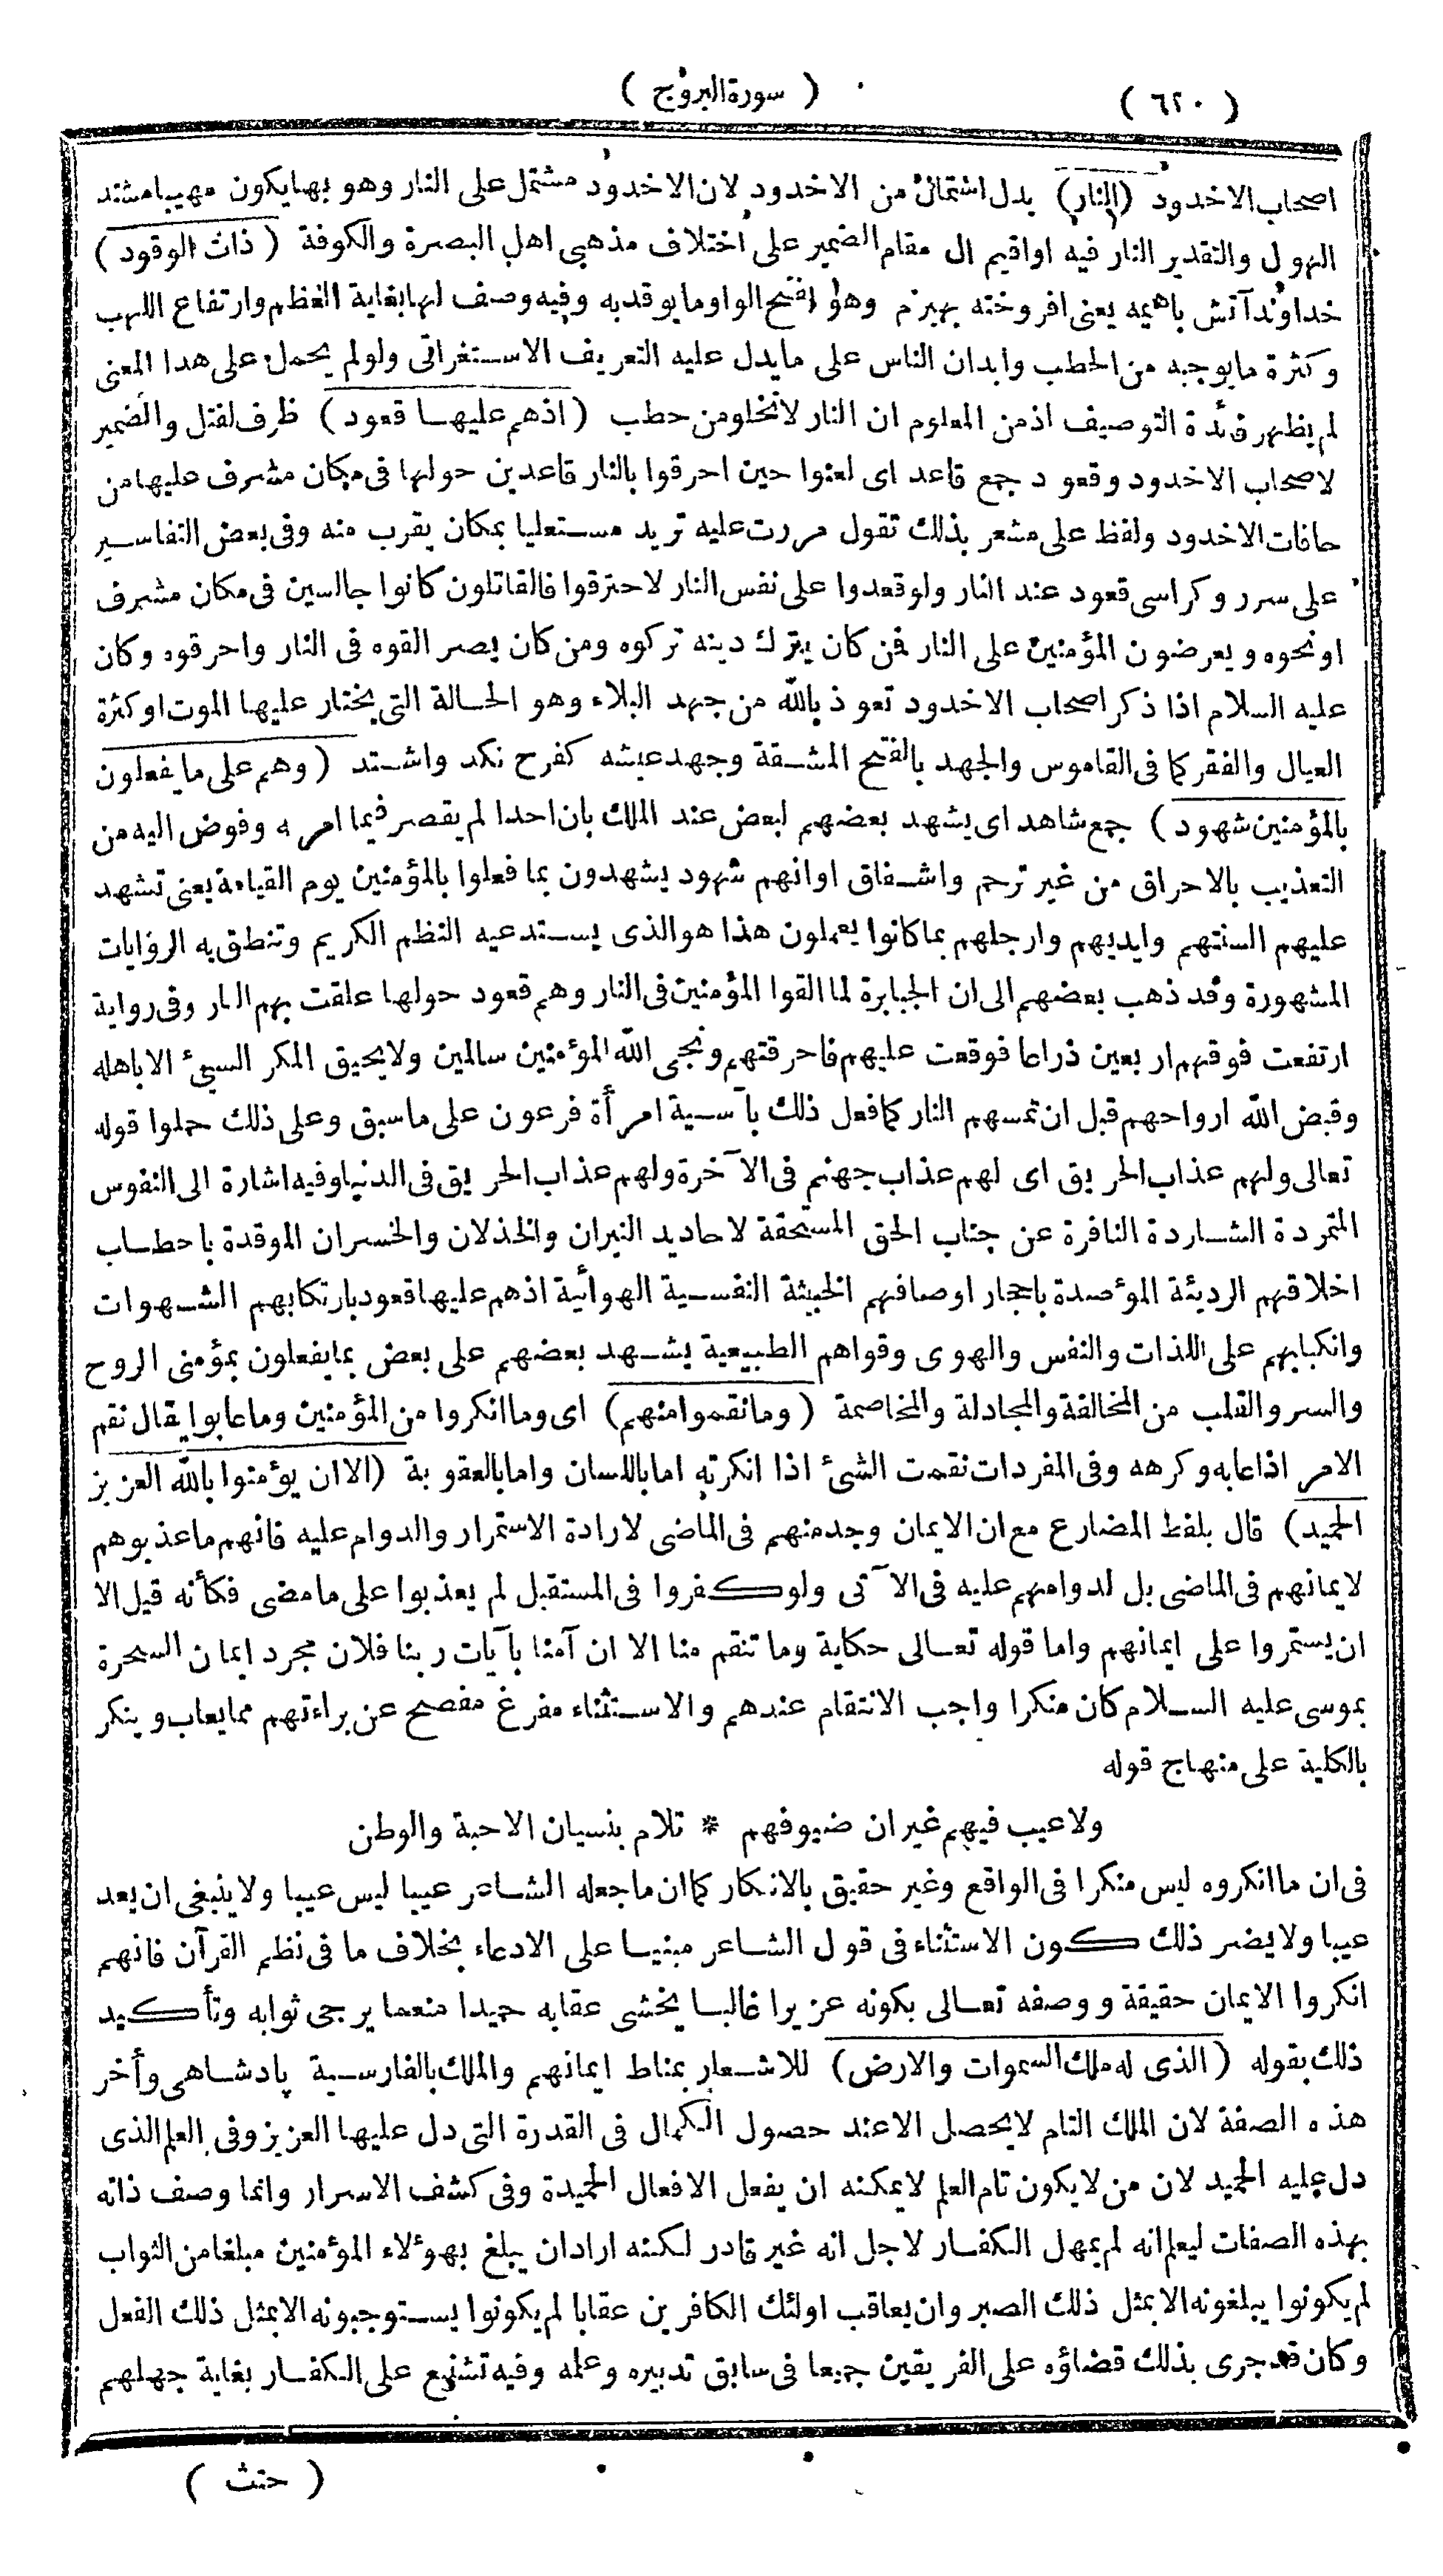 ( ٦٢٠ ) ( سورة البروج )
اصحاب الاخدود (النار) بدل اشتمال من الاخدود لان الاخدود مشتمل على النار وهو بها يكون مهيبا مشتد
الهول والتقدير النار فيه او اقيم ال مقام الضمير على اختلاف مذهبى اهل البصرة والكوفة (ذات الوقود)
خداوند آتش باهيمه يعنى افروخته بهيزم وهو بفتح الواو ما يوقد به وفيه وصف لها بغاية العظم وارتفاع اللهب
وكثرة ما يوجبه من الحطب وابدان الناس على ما يدل عليه التعريف الاستغراقى ولو لم يحمل على هذا المعنى
لم يظهر فائدة التوصيف اذ من المعلوم ان النار لا تخلو من حطب (اذ هم عليها قعود) ظرف لقتل والضمير
لاصحاب الاخدود وقعود جمع قاعد اى لعنوا حين احرقوا بالنار قاعدين حولها فى مكان مشرف عليها من
حافات الاخدود ولفظ على مشعر بذلك تقول مررت عليه تريد مستعليا بمكان يقرب منه وفى بعض التفاسير
على سرر وكراسى قعود عند النار ولو قعدوا على نفس النار لاحترقوا فالقاتلون كانوا جالسين فى مكان مشرف
او نحوه ويعرضون المؤمنين على النار فمن كان يترك دينه تركوه ومن كان يصر القوه فى النار واحرقوه وكان
عليه السلام اذا ذكر اصحاب الاخدود تعوذ بالله من جهد البلاء وهو الحالة التى يختار عليها الموت او كثرة
العيال والفقر كما فى القاموس والجهد بالفتح المشقة وجهد عيشه كفرح نكد واشتد (وهم على ما يفعلون
بالمؤمنين شهود) جمع شاهد اى يشهد بعضهم لبعض عند الملك بان احدا لم يقصر فيما امر به وفوض اليه من
التعذيب بالاحراق من غير ترحم واشفاق او انهم شهود يشهدون بما فعلوا بالمؤمنين يوم القيامة يعنى تشهد
عليهم السنتهم وايديهم وارجلهم بما كانوا يعملون هذا هو الذى يستدعيه النظم الكريم وتنطق به الروايات
المشهورة وقد ذهب بعضهم الى ان الجبابرة لما القوا المؤمنين فى النار وهم قعود حولها علقت بهم النار وفى رواية
ارتفعت فوقهم اربعين ذراعا فوقعت عليهم فاحرقتهم ونجى الله المؤمنين سالمين ولا يحيق المكر السيئ الا باهله
وقبض الله ارواحهم قبل ان تمسهم النار كما فعل ذلك بآسية امرأة فرعون على ما سبق وعلى ذلك حملوا قوله
تعالى ولهم عذاب الحريق اى لهم عذاب جهنم فى الآخرة ولهم عذاب الحريق فى الدنيا وفيه اشارة الى النفوس
المتمردة الشاردة النافرة عن جناب الحق المستحقة لاخاديد النيران والخذلان والخسران الموقدة باحطاب
اخلاقهم الرديئة المؤصدة باحجار اوصافهم الخبيثة النفسية الهوائية اذ هم عليها قعود بارتكابهم الشهوات
وانكبابهم على اللذات والنفس والهوى وقواهم الطبيعية يشهد بعضهم على بعض بما يفعلون بمؤمنى الروح
والسر والقلب من المخالفة والمجادلة والمخاصمة (وما نقموا منهم) اى وما انكروا من المؤمنين وما عابوا يقال نقم
الامر اذا عابه وكرهه وفى المفردات نقمت الشئ اذا انكرته اما باللسان واما بالعقوبة (الا ان يؤمنوا بالله العزيز
الحميد) قال بلفظ المضارع مع ان الايمان وجد منهم فى الماضى لارادة الاستمرار والدوام عليه فانهم ما عذبوهم
لايمانهم فى الماضى بل لدوامهم عليه فى الآتى ولو كفروا فى المستقبل لم يعذبوا على ما مضى فكأنه قيل الا
ان يستمروا على ايمانهم واما قوله تعالى حكاية وما تنقم منا الا ان آمنا بآيات ربنا فلان مجرد ايمان السحرة
بموسى عليه السلام كان منكرا واجب الانتقام عندهم والاستثناء مفرغ مفصح عن براءتهم مما يعاب وينكر
بالكلية على منهاج قوله
ولا عيب فيهم غير ان ضيوفهم * تلام بنسيان الاحبة والوطن
فى ان ما انكروه ليس منكرا فى الواقع وغير حقيق بالانكار كما ان ما جعله الشاعر عيبا ليس عيبا ولا ينبغى ان يعد
عيبا ولا يضر ذلك كون الاستثناء فى قول الشاعر مبنيا على الادعاء بخلاف ما فى نظم القرآن فانهم
انكروا الايمان حقيقة ووصفه تعالى بكونه عزيزا غالبا يخشى عقابه حميدا منعما يرجى ثوابه وتأكيد
ذلك بقوله (الذى له ملك السموات والارض) للاشعار بمناط ايمانهم والملك بالفارسية پادشاهى وأخر
هذه الصفة لان الملك التام لا يحصل الا عند حصول الكمال فى القدرة التى دل عليها العزيز وفى العلم الذى
دل عليه الحميد لان من لا يكون تام العلم لا يمكنه ان يفعل الافعال الحميدة وفى كشف الاسرار وانما وصف ذاته
بهذه الصفات ليعلم انه لم يمهل الكفار لاجل انه غير قادر لكنه اراد ان يبلغ بهؤلاء المؤمنين مبلغا من الثواب
لم يكونوا يبلغونه الا بمثل ذلك الصبر وان يعاقب اولئك الكافرين عقابا لم يكونوا يستوجبونه الا بمثل ذلك الفعل
وكان قد جرى بذلك قضاؤه على الفريقين جميعا فى سابق تدبيره وعلمه وفيه تشنيع على الكفار بغاية جهلهم
( حيث )